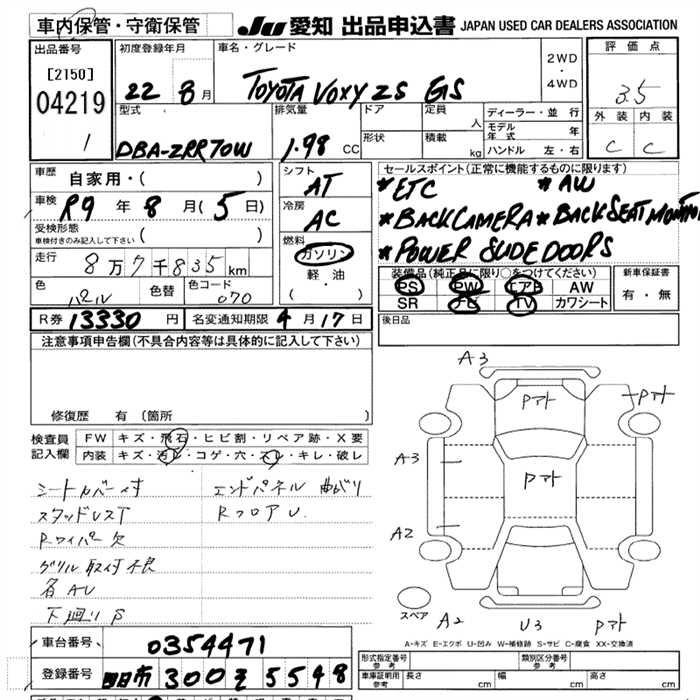 車内保管・守衛保管
JU 愛知 出品申込書 JAPAN USED CAR DEALERS ASSOCIATION
出品番号
[2150]
04219
1
初度登録年月
22 8月
車名・グレード
TOYOTA VOXY ZS GS
2WD
・
4WD
評価点
3.5
外装 内装
C C
型式
DBA-ZRR70W
排気量
1.98 CC
ドア
形状
定員 人
積載 kg
ディーラー・並行
モデル年式 年
ハンドル 左・右
車歴
自家用・( )
車検
R9年8月(5日)
受検形態
車検付きのみ記入して下さい
( )
走行
8万7千835km
色
パール
色替
色コード
070
シフト
AT
冷房
AC
燃料
ガソリン
軽・油
( ・ )
セールスポイント(正常に機能するものに限ります)
*ETC *AW
*BACK CAMERA *BACK SEAT MONITOR
*POWER SLIDE DOORS
装備品(純正品に限り○をつけてください)
PS PW エアB AW
SR TV カワシート
新車保証書
有・無
R券 13330円 名変通知期限 4月17日
後日品
注意事項申告欄(不具合内容等は具体的に記入して下さい)
修復歴 有(箇所 )
検査員記入欄
FW キズ・飛石・ヒビ割・リペア跡・X要
内装 キズ・汚レ・コゲ・穴・スレ・キレ・破レ
シートカバー付 エンドパネル曲がり
スタッドレスT RフロアU.
Rワイパー欠
グリル取付不良
各AU
下廻りS
A3
Pマト
Pマト
A3
Pマト
A2
スペア
A2 U3 Pマト
A-キズ E-エクボ U-凹み W-補修跡 S-サビ C-腐食 XX-交換済
車台番号 0354471
登録番号 四日市 300 そ 5548
形式指定番号
参考
類別区分番号
参考
車庫証明用
参考
長さ cm 幅 cm 高さ cm